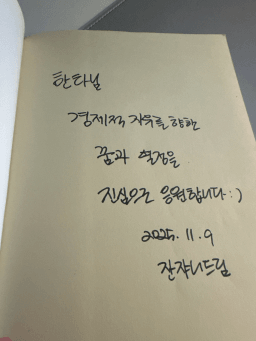 한타님
경제적 자유를 향한
꿈과 열정을
진심으로 응원합니다 :)
2025. 11. 9
잔쟈니드림